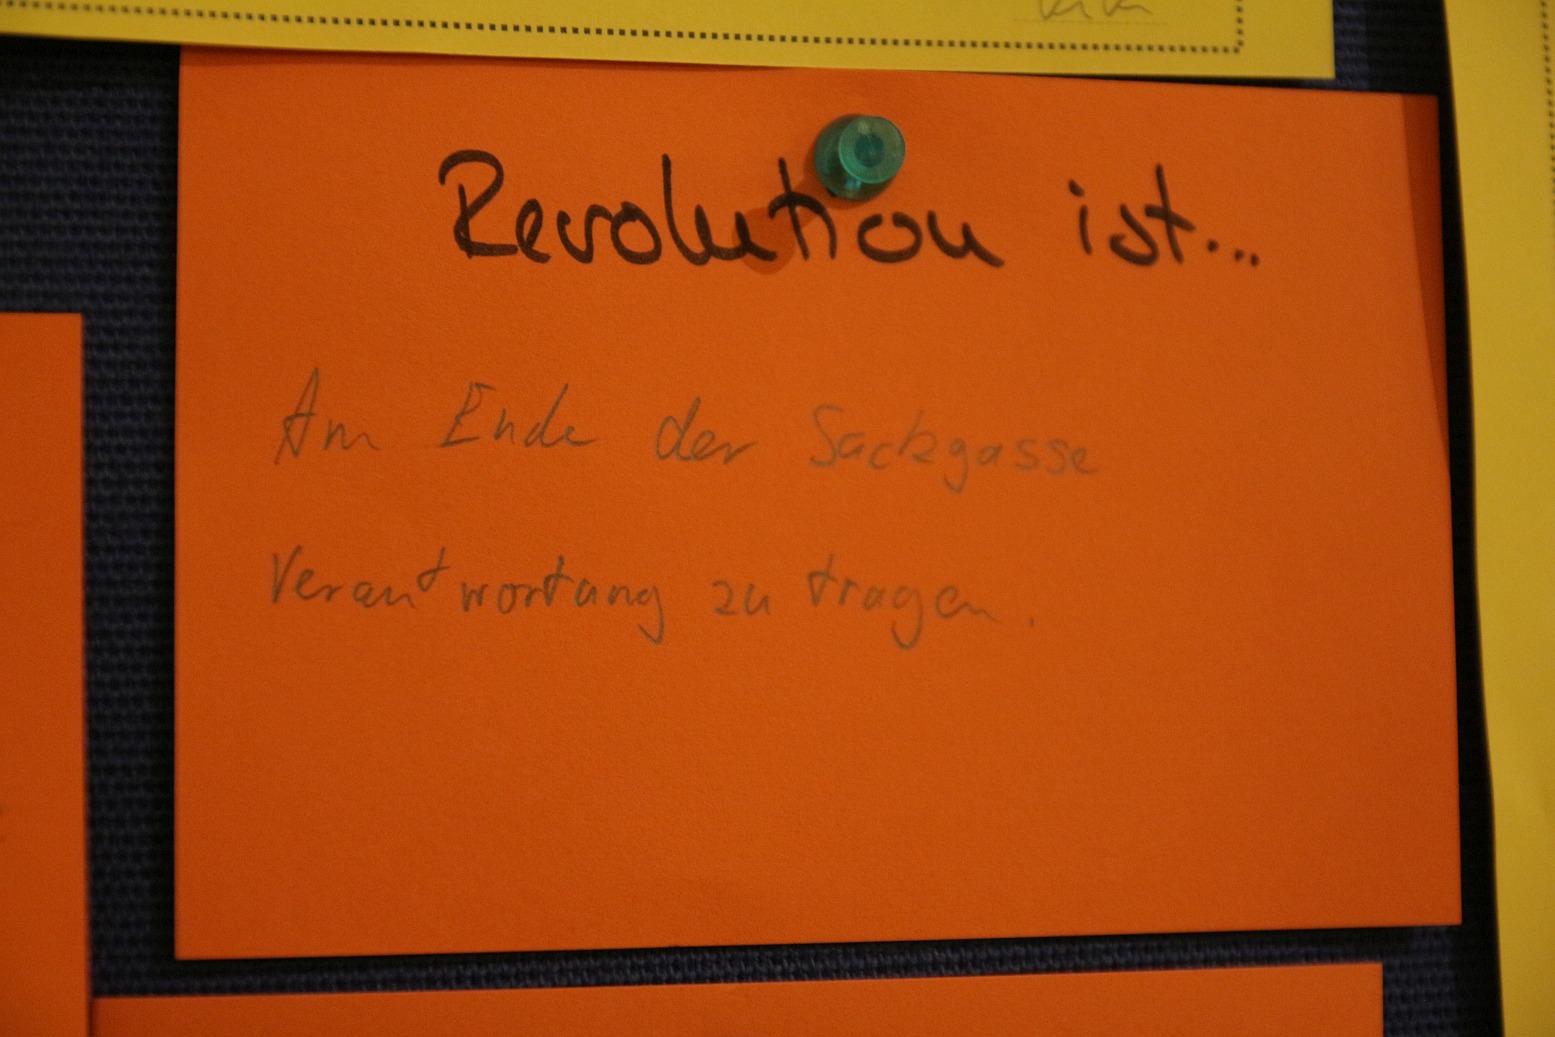 Revolution ist...
Am Ende der Sackgasse
Verantwortung zu tragen.